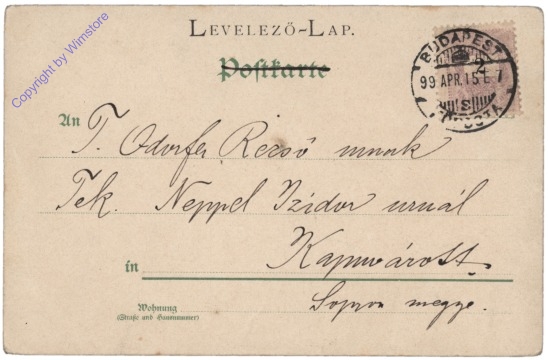 Copyright by Wimstore
LEVELEZŐ-LAP.
Postkarte
BUDAPEST
99 APR. 15 E 7
An
T. Odorfer Rezső urnak
Tek. Neppel Izidor urnál
Kapuvárott.
in
Sopron megye.
Wohnung
(Straße und Hausnummer)